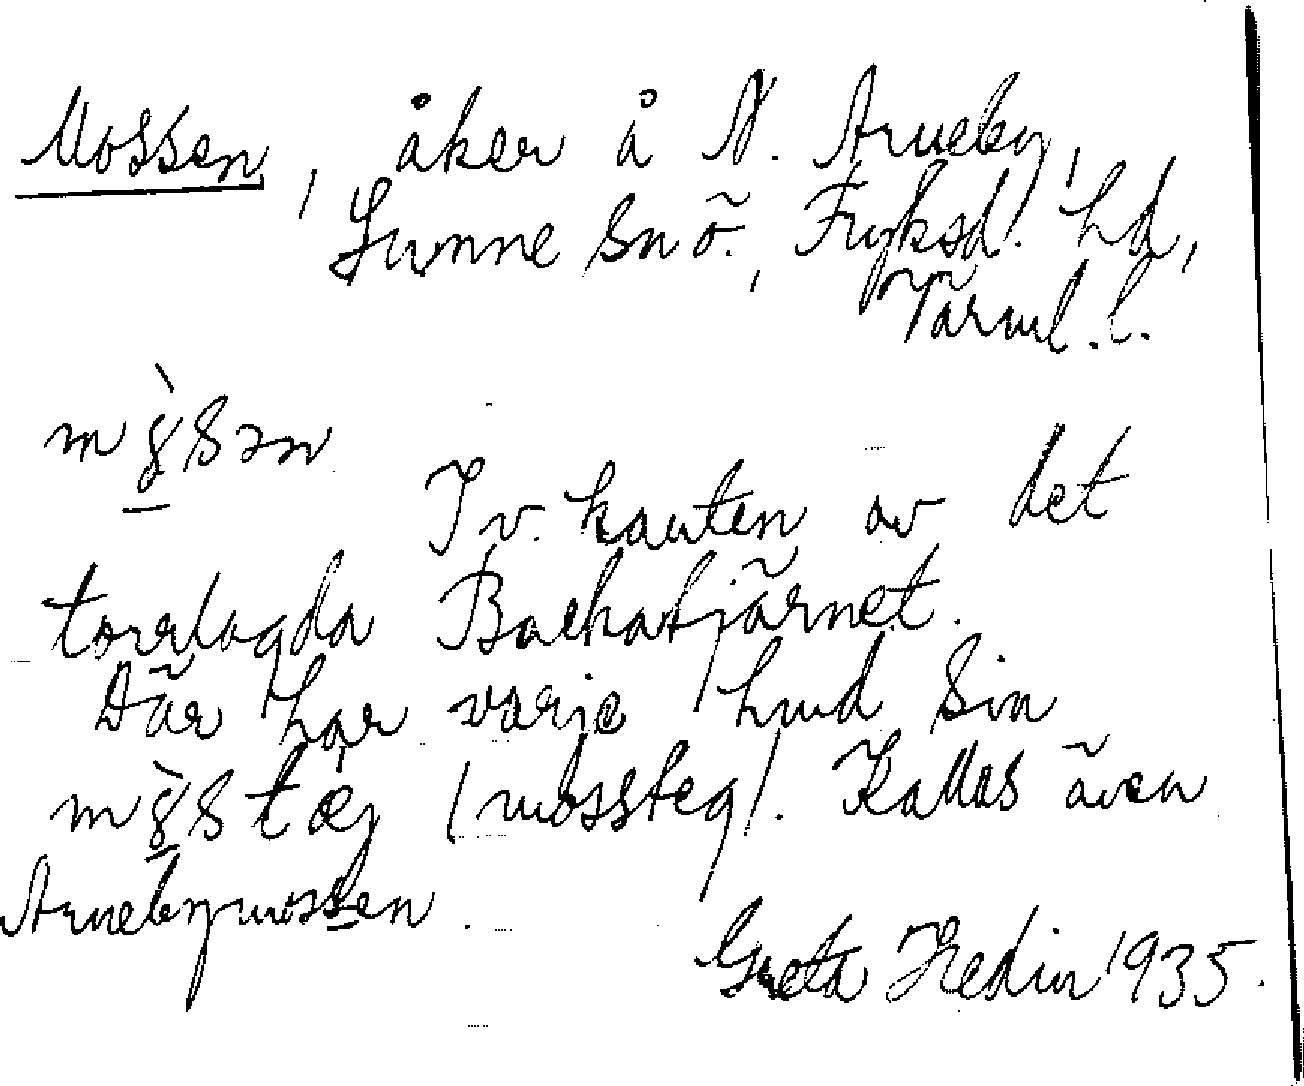 Mossen, åker å N. Arneby,
Sunne sn ö., Fryksd. hd,
Värml. l.
I v. kanten av det
torrlagda Backatjärnet.
Där har varje hud sin
(mossteg). Kallas även
Arnebymossen.
Greta Hedin 1935.